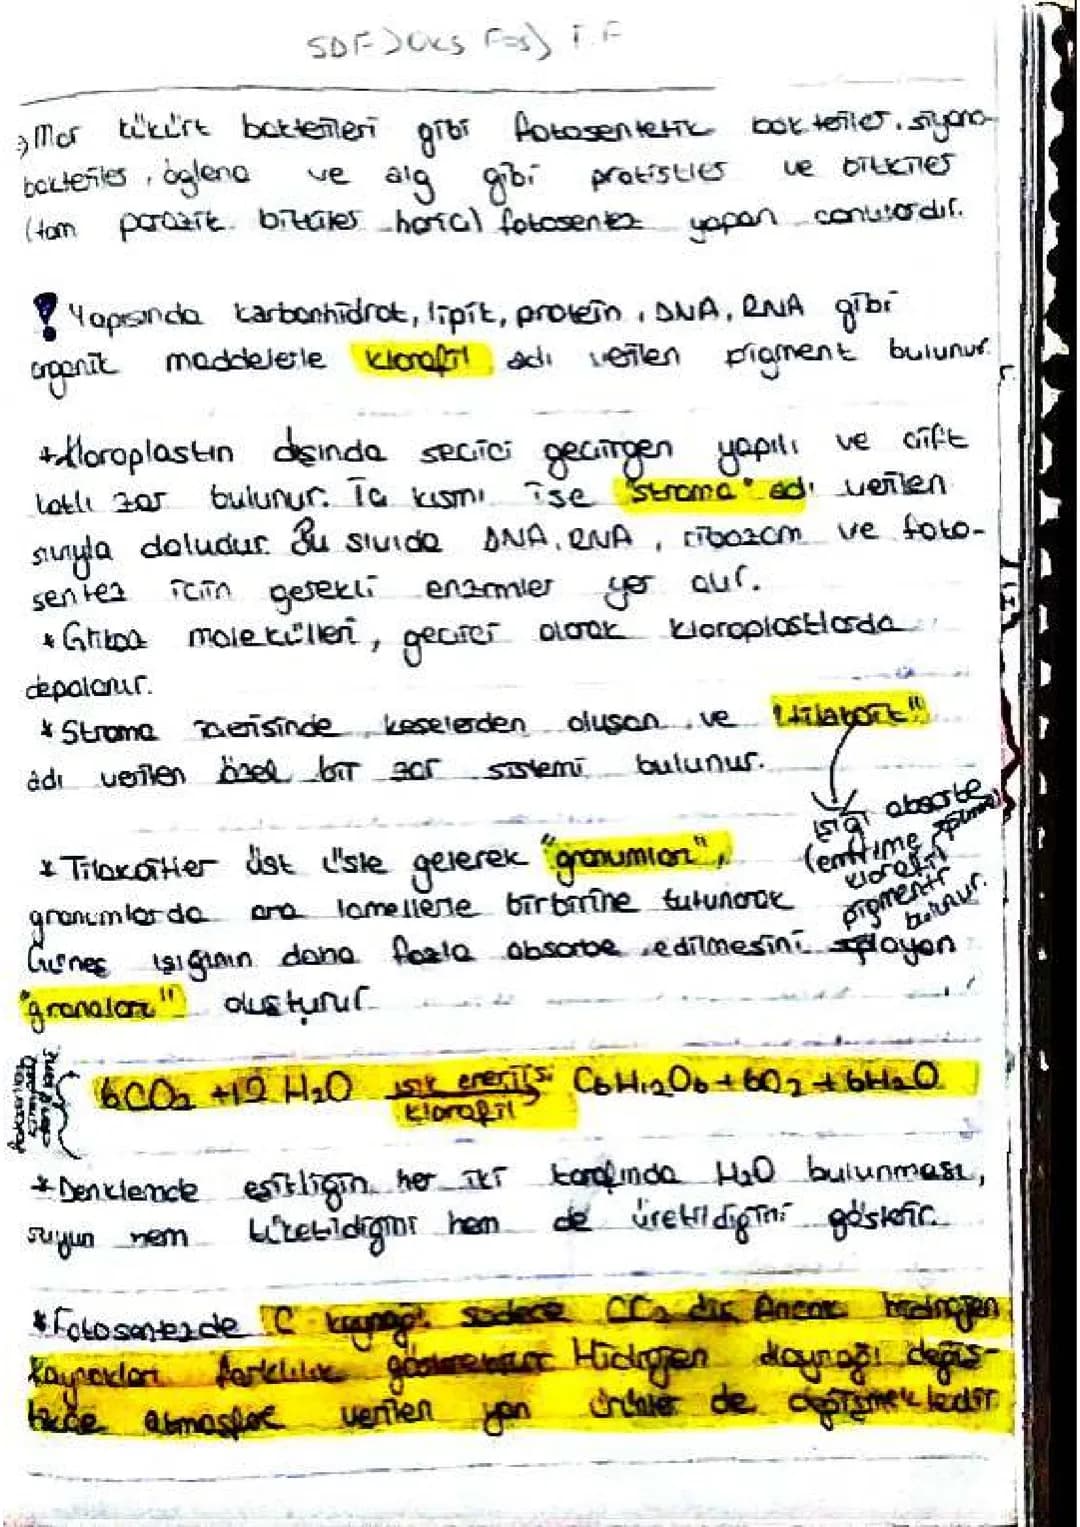 SDF) Oks Fos) İ.F
→ Mor kükürt bakterileri gibi fotosentetik bakteriler, siyano-
bakteriler, öglena ve alg gibi protistler ve bitkiler
(tam parazit bitkiler hariç) fotosentez yapan canlılardır.
! Yapısında karbonhidrat, lipit, protein, DNA, RNA gibi
organik maddelerle klorofil adı verilen pigment bulunur.
* Kloroplastın dışında seçici geçirgen yapılı ve çift
katlı zar bulunur. İç kısmı ise "stroma" adı verilen
sıvıyla doludur. Bu sıvıda DNA, RNA, ribozom ve foto-
sentez için gerekli enzimler yer alır.
* Glikoz molekülleri, geçici olarak kloroplastlarda
depolanır.
* Stroma içerisinde keselerden oluşan ve "tilakoit"
adı verilen özel bir zar sistemi bulunur.
ışığı absorbe
(emilime
klorofil
pigmenti
bulunur.
* Tilakoitler üst üste gelerek "granumları",
granumlarda ara lamellerle birbirine tutunarak
Güneş ışığının daha fazla absorbe edilmesini sağlayan
"granaları" oluşturur.
6CO2 + 12 H2O ışık enerjisi C6H12O6 + 6O2 + 6H2O
klorofil
* Denklemde eşitliğin her iki tarafında H2O bulunması,
suyun hem tüketildiğini hem de üretildiğini gösterir.
* Fotosentezde C kaynağı sadece CO2 dir. Ancak hidrojen
kaynakları farklılık göstermektedir Hidrojen kaynağı değiş-
tikçe atmosfere verilen yan ürünler de değişmektedir